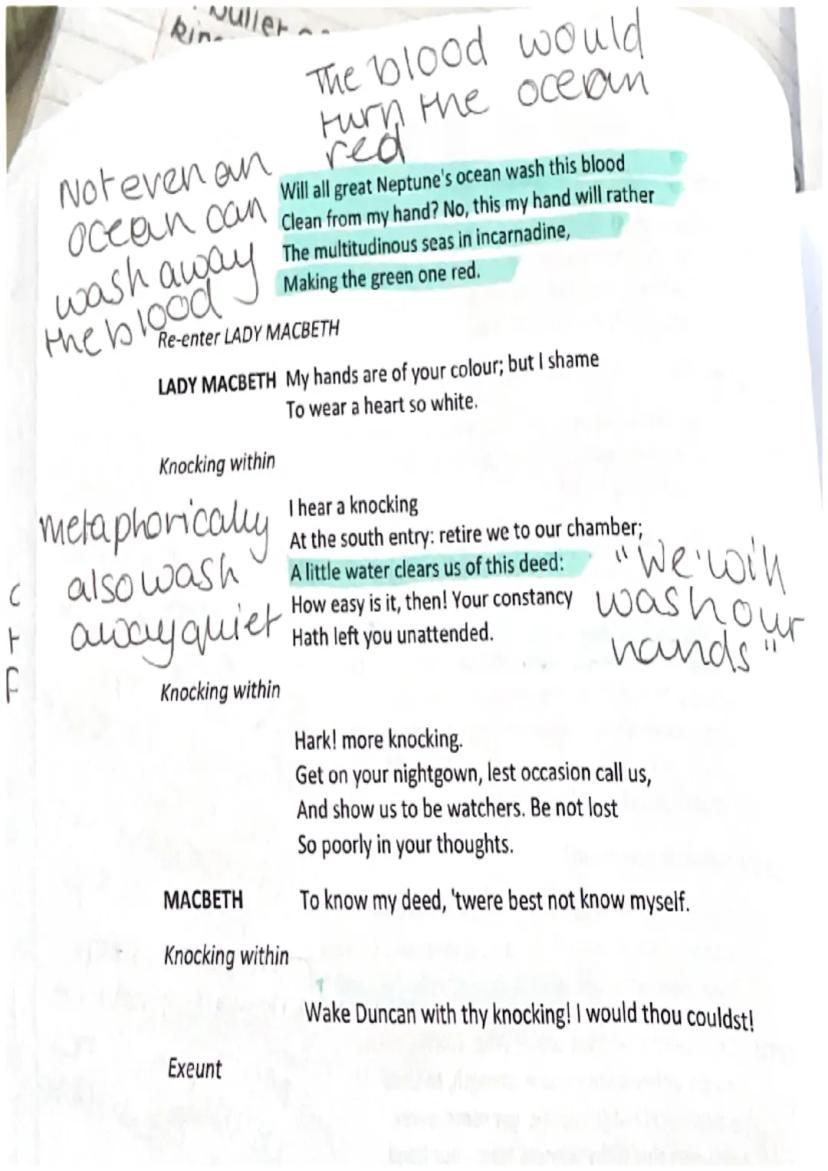 The blood would
turn the ocean
red
Not even an
ocean can
wash away
the blood
Will all great Neptune's ocean wash this blood
Clean from my hand? No, this my hand will rather
The multitudinous seas in incarnadine,
Making the green one red.
Re-enter LADY MACBETH
LADY MACBETH My hands are of your colour; but I shame
To wear a heart so white.
Knocking within
I hear a knocking
At the south entry: retire we to our chamber;
metaphorically
also wash
away quiet
A little water clears us of this deed:
How easy is it, then! Your constancy
Hath left you unattended.
"We will
wash our
hands"
Knocking within
Hark! more knocking.
Get on your nightgown, lest occasion call us,
And show us to be watchers. Be not lost
So poorly in your thoughts.
MACBETH To know my deed, 'twere best not know myself.
Knocking within
Wake Duncan with thy knocking! I would thou couldst!
Exeunt